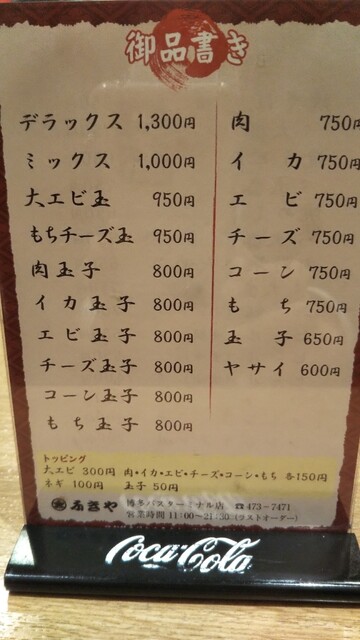 御品書き
デラックス 1,300円
ミックス 1,000円
大エビ玉 950円
もちチーズ玉 950円
肉玉子 800円
イカ玉子 800円
エビ玉子 800円
チーズ玉子 800円
コーン玉子 800円
もち玉子 800円
肉 750円
イカ 750円
エビ 750円
チーズ 750円
コーン 750円
もち 750円
玉子 650円
ヤサイ 600円
トッピング
大エビ 300円 肉・イカ・エビ・チーズ・コーン・もち 各150円
ネギ 100円 玉子 50円
ふきや 博多バスターミナル店 ☎473-7471
営業時間 11:00~21:30 (ラストオーダー)
Coca-Cola